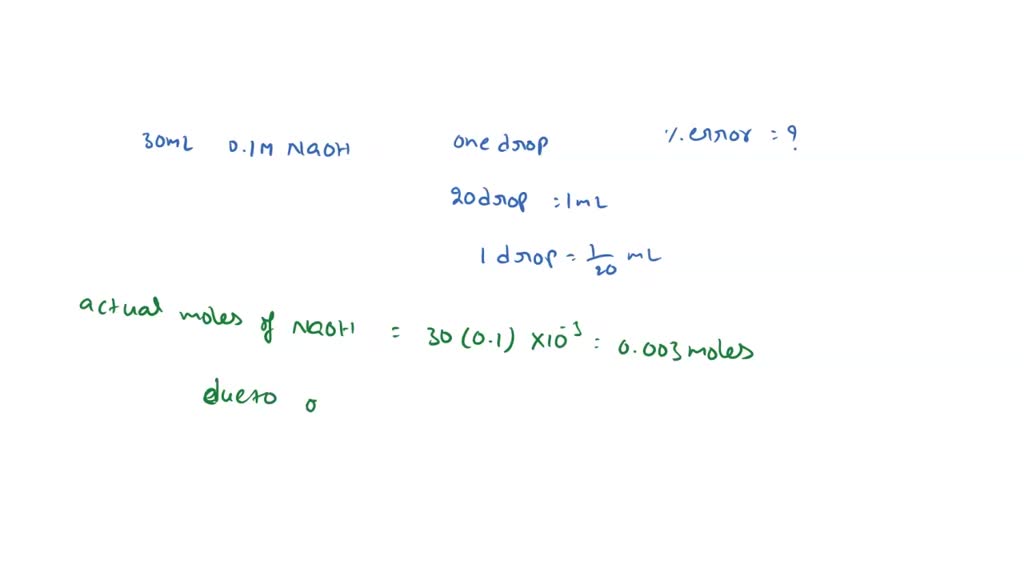 30mL 0.1M NaOH one drop %.error = ?
20 drop = 1mL
1 drop = 1/20 mL
actual moles of NaOH = 30 (0.1) x10^-3 = 0.003 moles
due to o